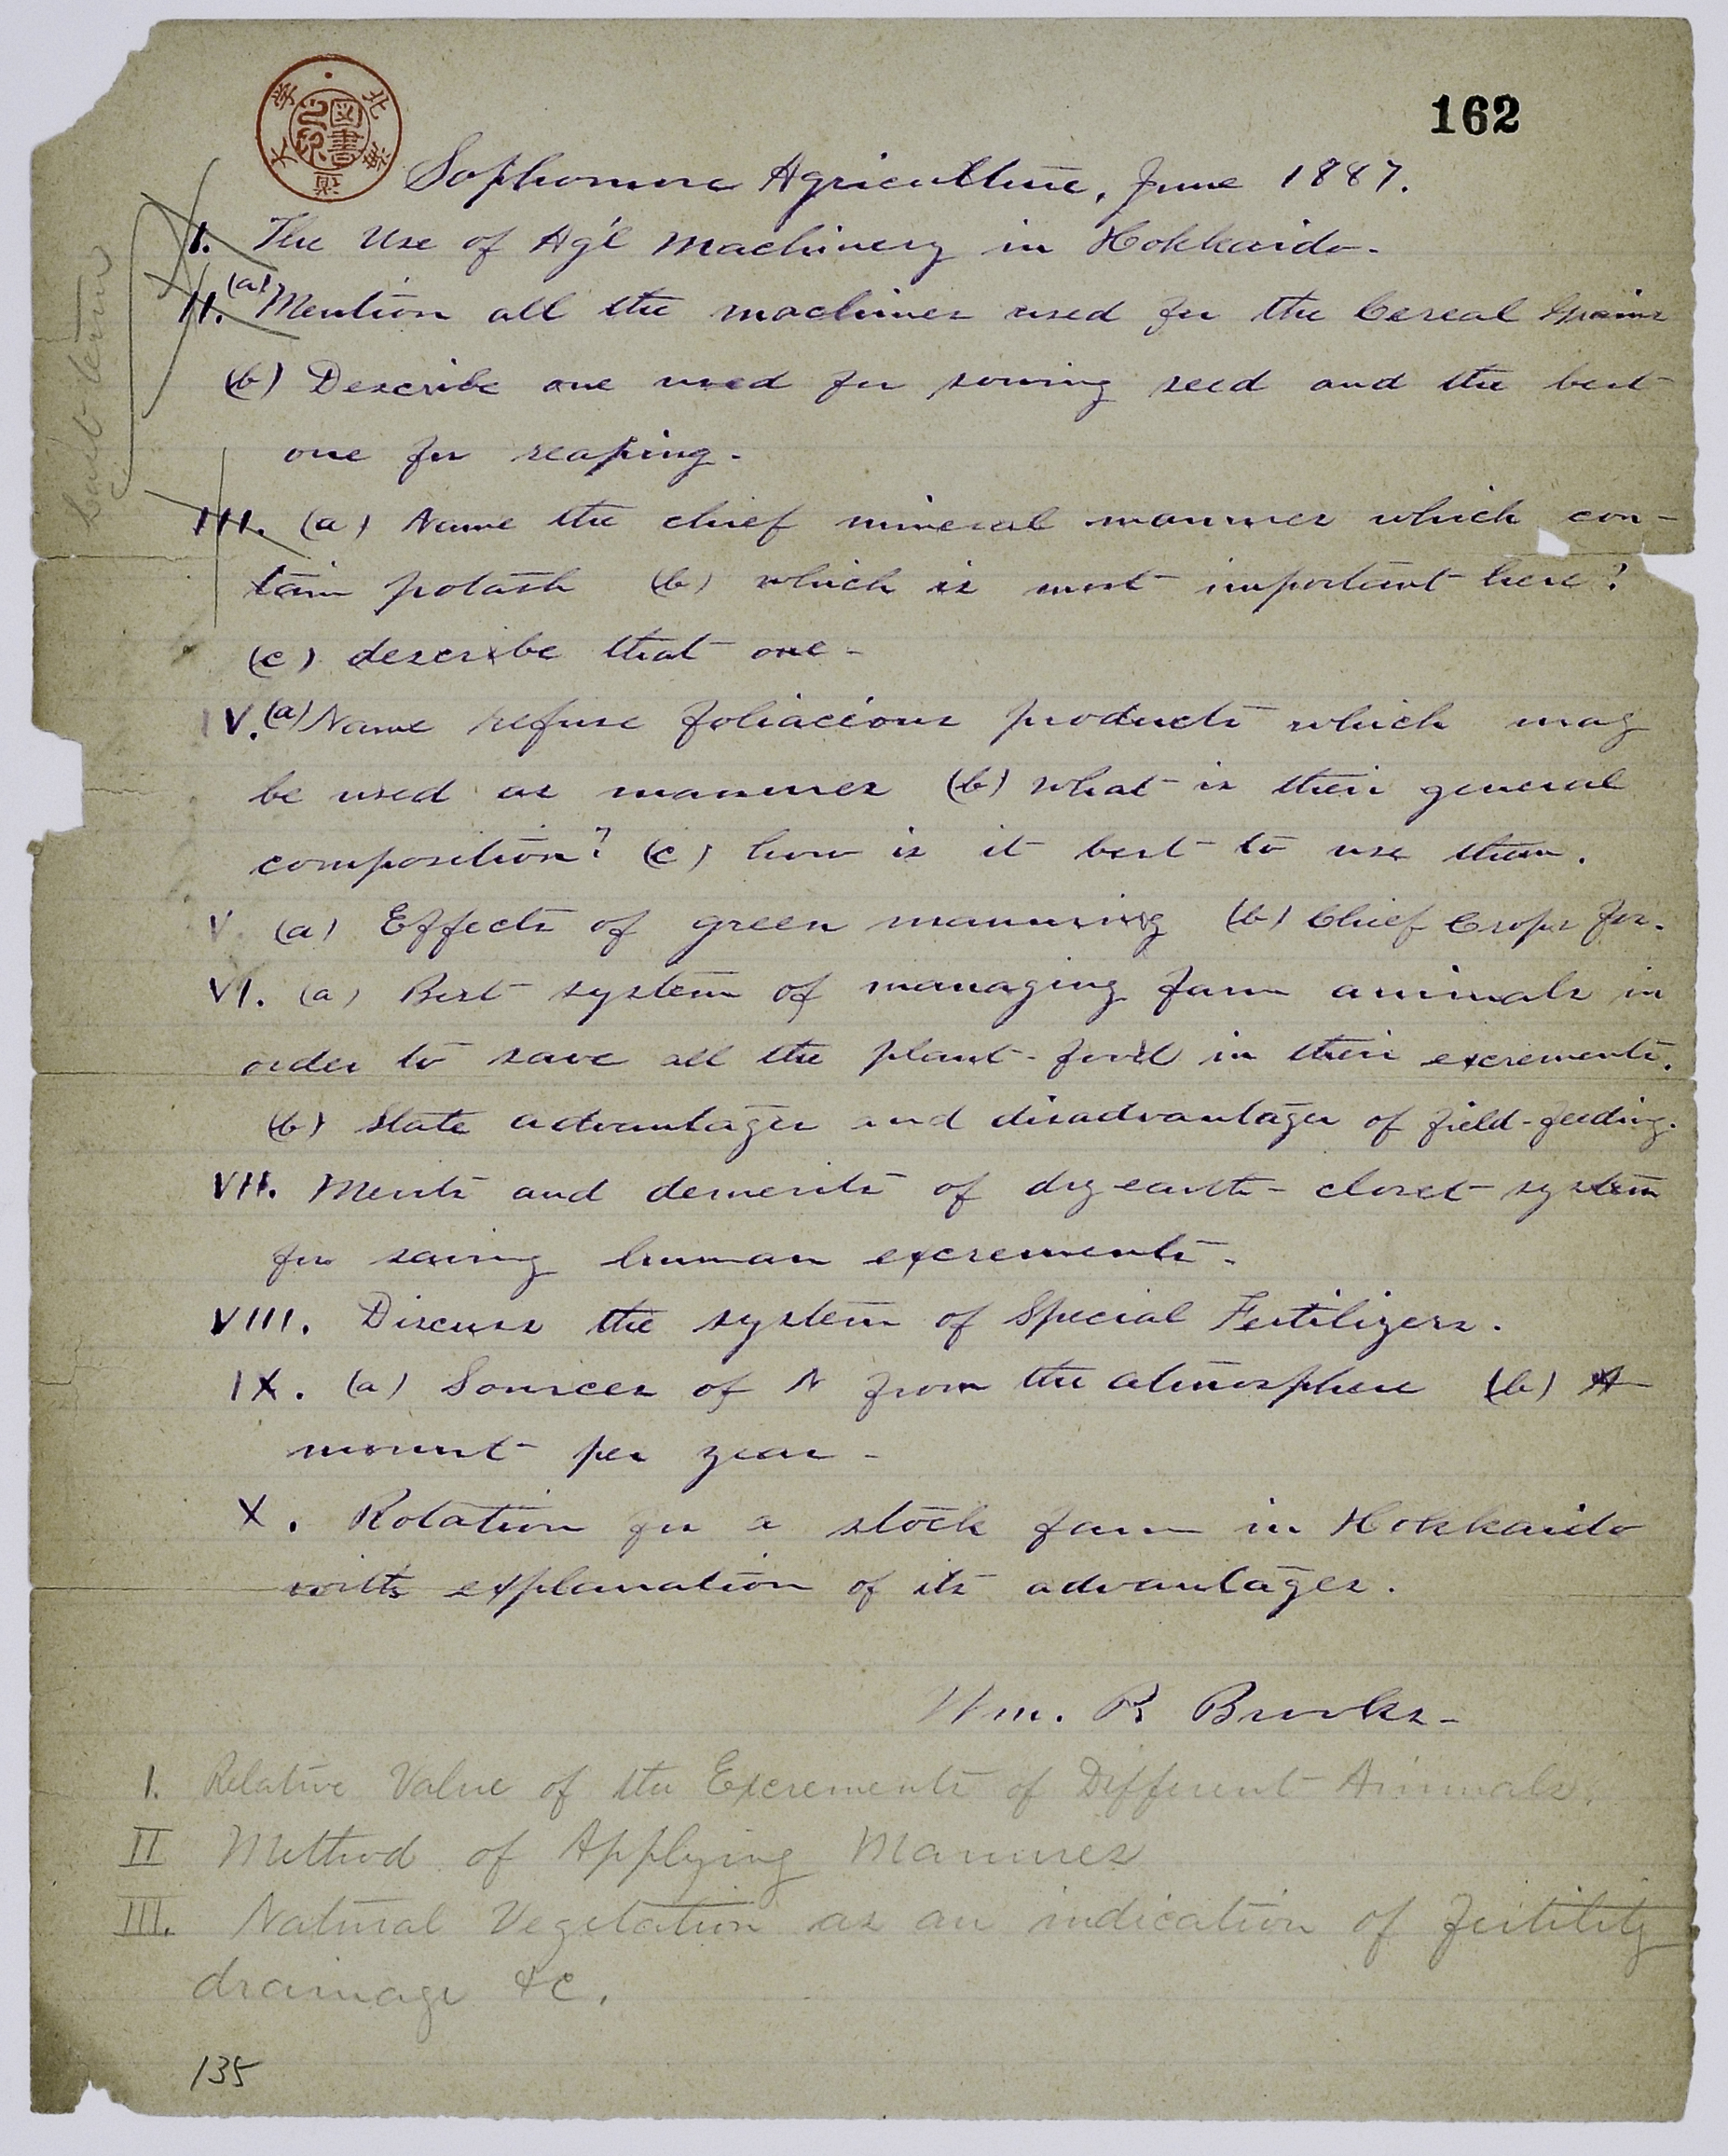 162
北海道大学
図書之印
Sophomore Agriculture, June 1887.
I. The Use of Ag'l Machinery in Hokkaido-
II. (a) Mention all the machines used for the Cereal Grains
(b) Describe one used for sowing seed and the best
one for reaping-
III. (a) Name the chief mineral manures which con-
tain potash (b) which is most important here?
(c) describe that one-
IV. (a) Name refuse foliacious products which may
be used as manures (b) what is their general
composition? (c) how is it best to use them.
V (a) Effects of green manuring (b) Chief Crops for.
VI. (a) Best system of managing farm animals in
order to save all the plant-food in their excrements.
(b) State advantages and disadvantages of field-feeding.
VII. Merits and demerits of dry earth-closet system
for saving human excrements-
VIII. Discuss the system of Special Fertilizers.
IX. (a) Sources of N from the atmosphere (b) A
mount per year-
X. Rotation for a stock farm in Hokkaido
with explanation of its advantages.
Wm. P. Brooks-
I. Relative Value of the Excrements of Different Animals.
II Method of Applying Manures
III. Natural Vegetation as an indication of fertility
drainage &c.
135